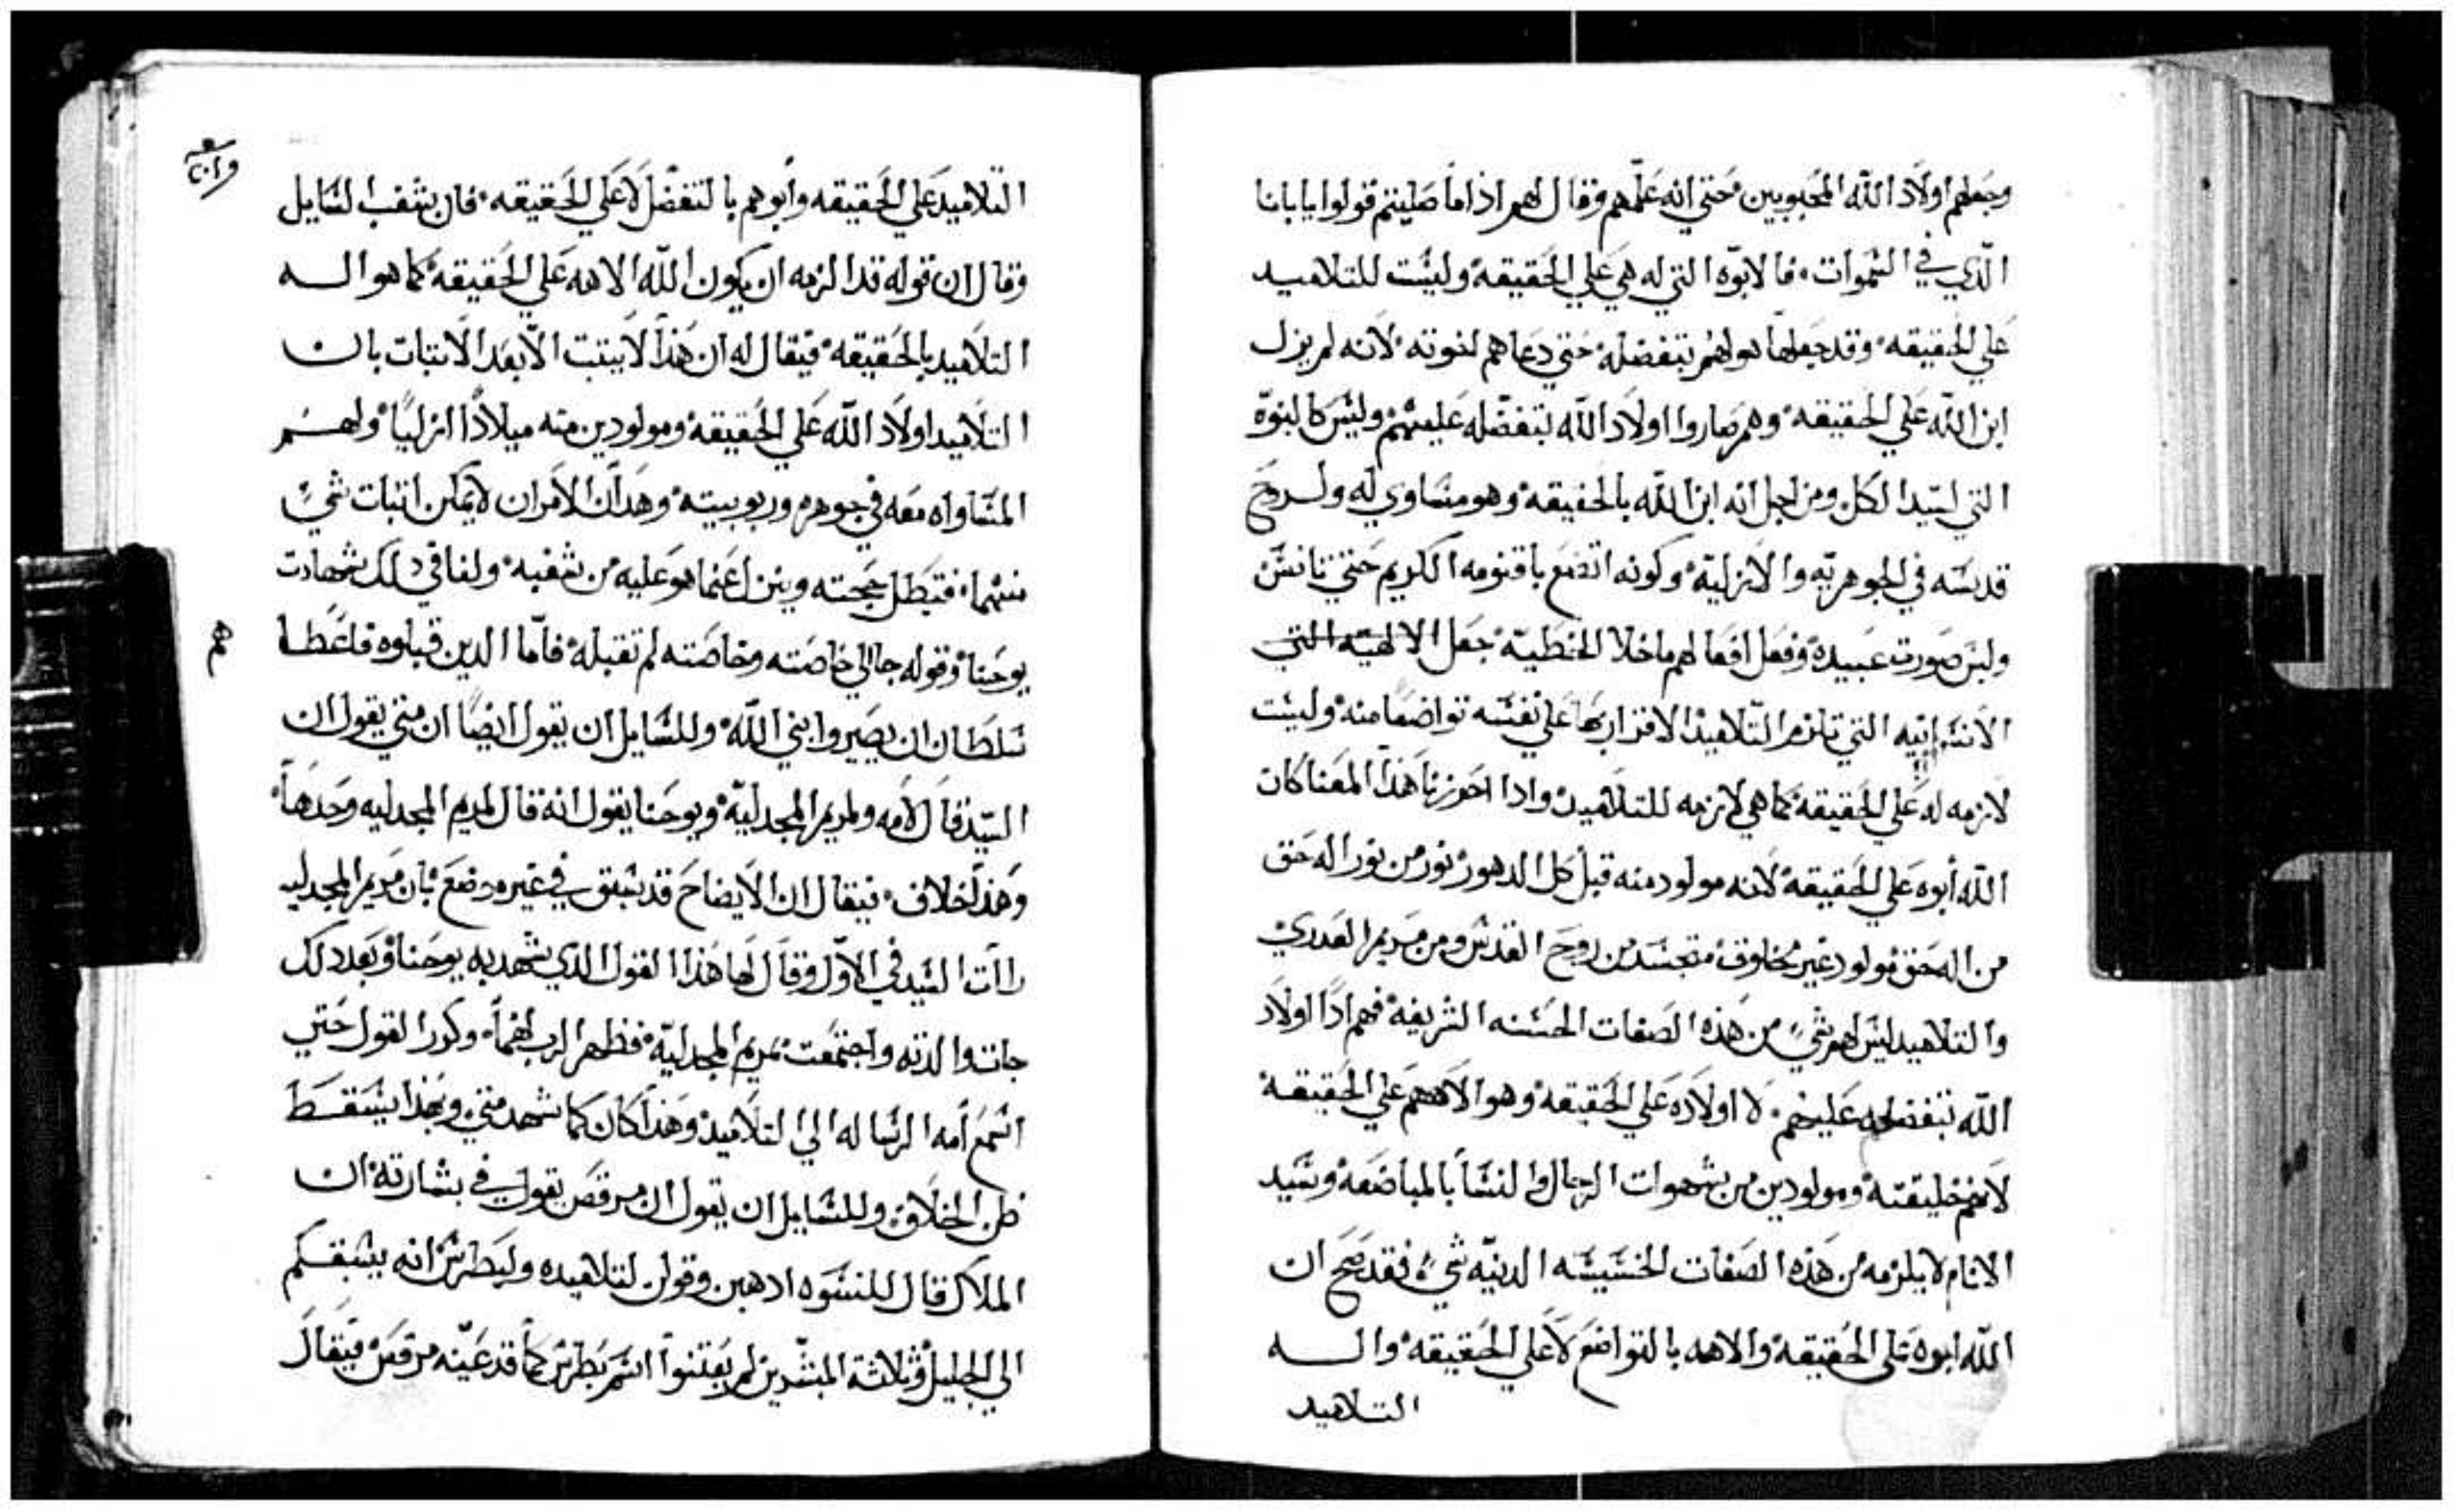 وجعلهم اولاد الله المحبوبين حتي انه علمهم وقال لهم اذا ما صليتم قولوا يا بانا
الذي في السموات فالابوه التي له هي علي الحقيقه وليست للتلاميد
علي الحقيقه وقد جعلها هو لهم بتفضله حتي دعاهم اخوته لانه لم يزل
ابن الله علي الحقيقه وهم صاروا اولاد الله بتفضله عليهم وليس كالبنوه
التي لسيد الكل ومن اجل انه ابن الله بالحقيقه وهو متساوي له ولروح
قدسه في الجوهريه والازليه وكونه اتضع باقنومه الكريم حتي تانس
ولبس صورت عبيده وفعل افعالهم ما خلا الخطيه جعل الالهيه التي
الانسانيه التي تلزم التلاميد الاقرار بها علي نفسه تواضعا منه وليست
لازمه له علي الحقيقه كما هي لازمه للتلاميد وادا احرزنا هذا المعنا كان
الله أبوه علي الحقيقه لانه مولود منه قبل كل الدهور نور من نور اله حق
من اله حق مولود غير مخلوق متجسد من روح القدس ومن مريم العدري
والتلاميد ليس لهم شي من هذه الصفات الحسنه الشريفه فهم ادا اولاد
الله بتفضله عليهم لا اولاده علي الحقيقه وهو الاههم علي الحقيقه
لانهم خليقته ومولودين من شهوات الرجال والنسا بالمباضعه وسيد
الانام لا يلزمه من هذه الصفات الخسيسه الدنيه شي فقد صح ان
الله ابوه علي الحقيقه والاهه بالتواضع لا علي الحقيقه واله
التلاميد
التلاميد علي الحقيقه وأبوهم بالتفضل لا علي الحقيقه فان شغب السايل
وقال ان قوله قد الزمه ان يكون الله الاهه علي الحقيقه كما هو اله
التلاميد بالحقيقه فيقال له ان هذا لا يتبت الا بعد الاتبات بان
التلاميد اولاد الله علي الحقيقه ومولودين منه ميلادا ازليا ولهم
المساواه معه في جوهره وربوبيته وهدان الامران لا يمكن اتبات شي
منهما فتبطل حجته وينزل عنما هو عليه من شغبه ولنا في دلك شهادت
يوحنا وقوله جا الي خاصته وخاصته لم تقبله فاما الدين قبلوه فاعطا
هم
سلطان ان يصيروا بني الله وللسايل ان يقول ايضا ان متي يقول ان
السيد قال لامه ولمريم المجدليه ويوحنا يقول انه قال لمريم المجدليه وحدها
وهذا خلاف فيقال ان الايضاح قد سبق في غير موضع بان مريم المجدليه
راات السيد في الاول وقال لها هذا القول الدي شهد به يوحنا وبعد دلك
جات والدته واجتمعت بمريم المجدليه فظهر الرب لهما وكرر القول حتي
اسمع أمه الرساله الي التلاميد وهذا كان كما شهد متي وبهذا يسقط
ظن الخلاف وللسايل ان يقول ان مرقص يقول في بشارته ان
الملاك قال للنسوه ادهبن وقولن لتلاميده ولبطرس انه يسبقكم
الي الجليل وثلاثة المبشرين لم يعتنوا اسم بطرس كما قد عينه مرقص فيقال